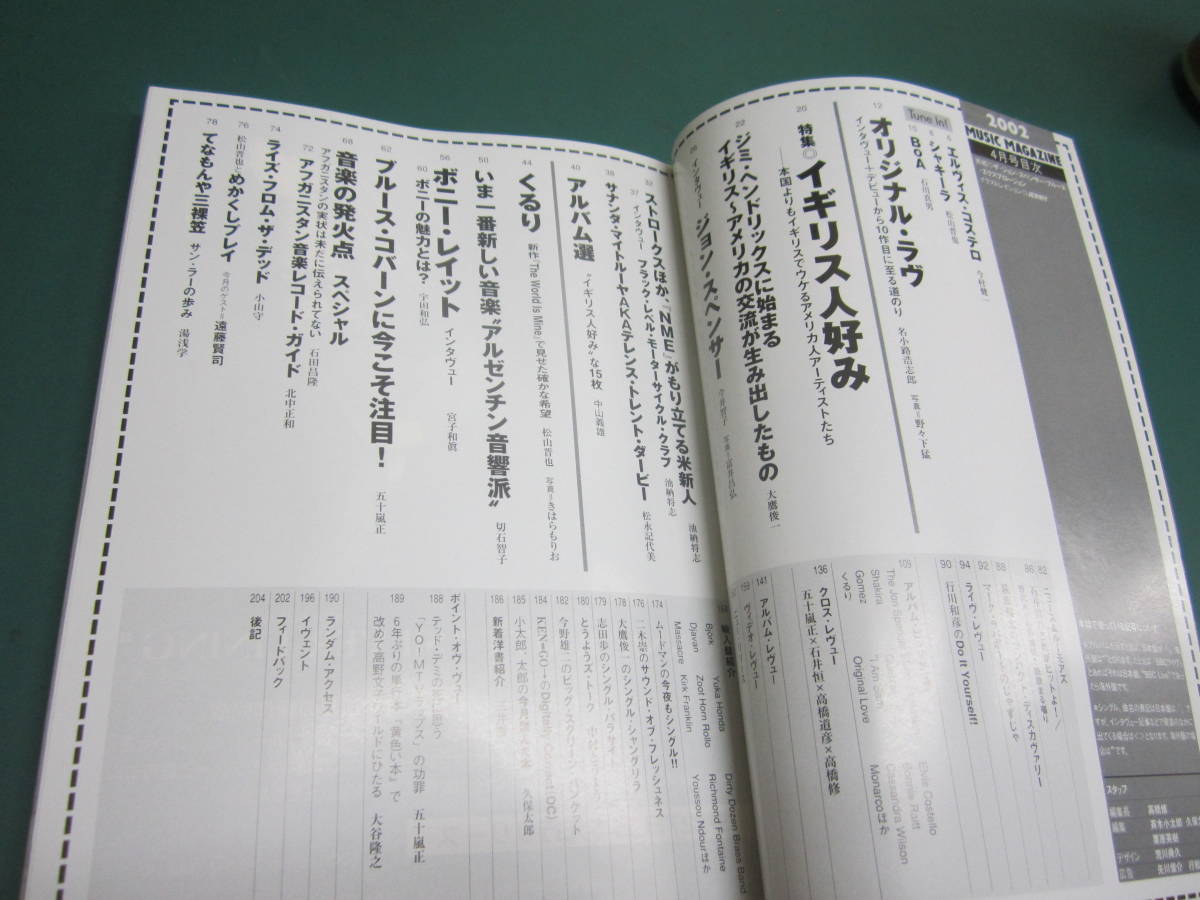 2002
MUSIC MAGAZINE
4月号目次
Tune In!
6 エルヴィス・コステロ 今村健一
8 シャキーラ 松山晋也
15 BoA 石川真男
12 オリジナル・ラヴ
インタヴュー+デビューから10作目に至る道のり 名小路浩志郎 写真=野々下猛
20 特集◎イギリス人好み
──本国よりもイギリスでウケるアメリカ人アーティストたち
22 ジミ・ヘンドリックスに始まる
イギリス〜アメリカの交流が生み出したもの 大鷹俊一
インタヴュー ジョン・スペンサー 今井智子 写真=富井昌弘
32 ストロークスほか、『NME』がもり立てる米新人 池納将志
37 インタヴュー ブラック・レベル・モーターサイクル・クラブ 池納将志
38 サナンダ・マイトルーヤAKAテレンス・トレント・ダービー 松永記代美
40 アルバム選 “イギリス人好み”な15枚 中山義雄
44 くるり 新作『The World is Mine』で見せた確かな希望 松山晋也 写真=きはらもりお
50 いま一番新しい音楽“アルゼンチン音響派” 切石智子
56 ボニー・レイット インタヴュー 宮子和眞
60 ボニーの魅力とは? 宇田和弘
62 ブルース・コバーンに今こそ注目! 五十嵐正
68 音楽の発火点 スペシャル
アフガニスタンの実状は未だに伝えられてない 石田昌隆
72 アフガニスタン音楽レコード・ガイド 北中正和
74 ライズ・フロム・ザ・デッド 小山守
76 松山晋也のめかくしプレイ 今月のゲスト=遠藤賢司
78 てなもんや三裸笠 サン・ラーの歩み 湯浅学
82
86
88
92
94 ライヴ・レヴュー
90 行川和彦のDo It Yourself!
109
The Jon Spencer
Shakira
Gomez
くるり
"I Am Sam"
Original Love
Elvis Costello
Bonnie Raitt
Cassandra Wilson
Monarcoほか
136 クロス・レヴュー
五十嵐正×石井恒×高橋道彦×高橋修
141 アルバム・レヴュー
159 ヴィデオ・レヴュー
輸入盤紹介
Björk
Djavan
Massacre
Yuka Honda
Zoot Horn Rollo
Kirk Franklin
Dirty Dozen Brass Band
Richmond Fontaine
Youssou Ndourほか
174 ムードマンの今夜もシングル!!
176 二木崇のサウンド・オブ・フレッシュネス
178 大鷹俊一のシングル・シャングリラ
179 志田歩のシングル・パラサイト
180 とうようズ・トーク
182 今野雄二のビッグ・スクリーン・バンケット
184 KEN=GO→のDigitally Contact(DC)
185 小太郎、太郎の今月読んだ本 久保太郎
186 新着洋書紹介
ポイント・オヴ・ヴュー
188 テッド・デミの死に思う
『YO! MTVラップス』の功罪 五十嵐正
189 6年ぶりの単行本『黄色い本』で
改めて高野文子ワールドにひたる 大谷隆之
190 ランダム・アクセス
196 イヴェント
202 フィードバック
204 後記
スタッフ
編集長 高橋修
デザイン
広告